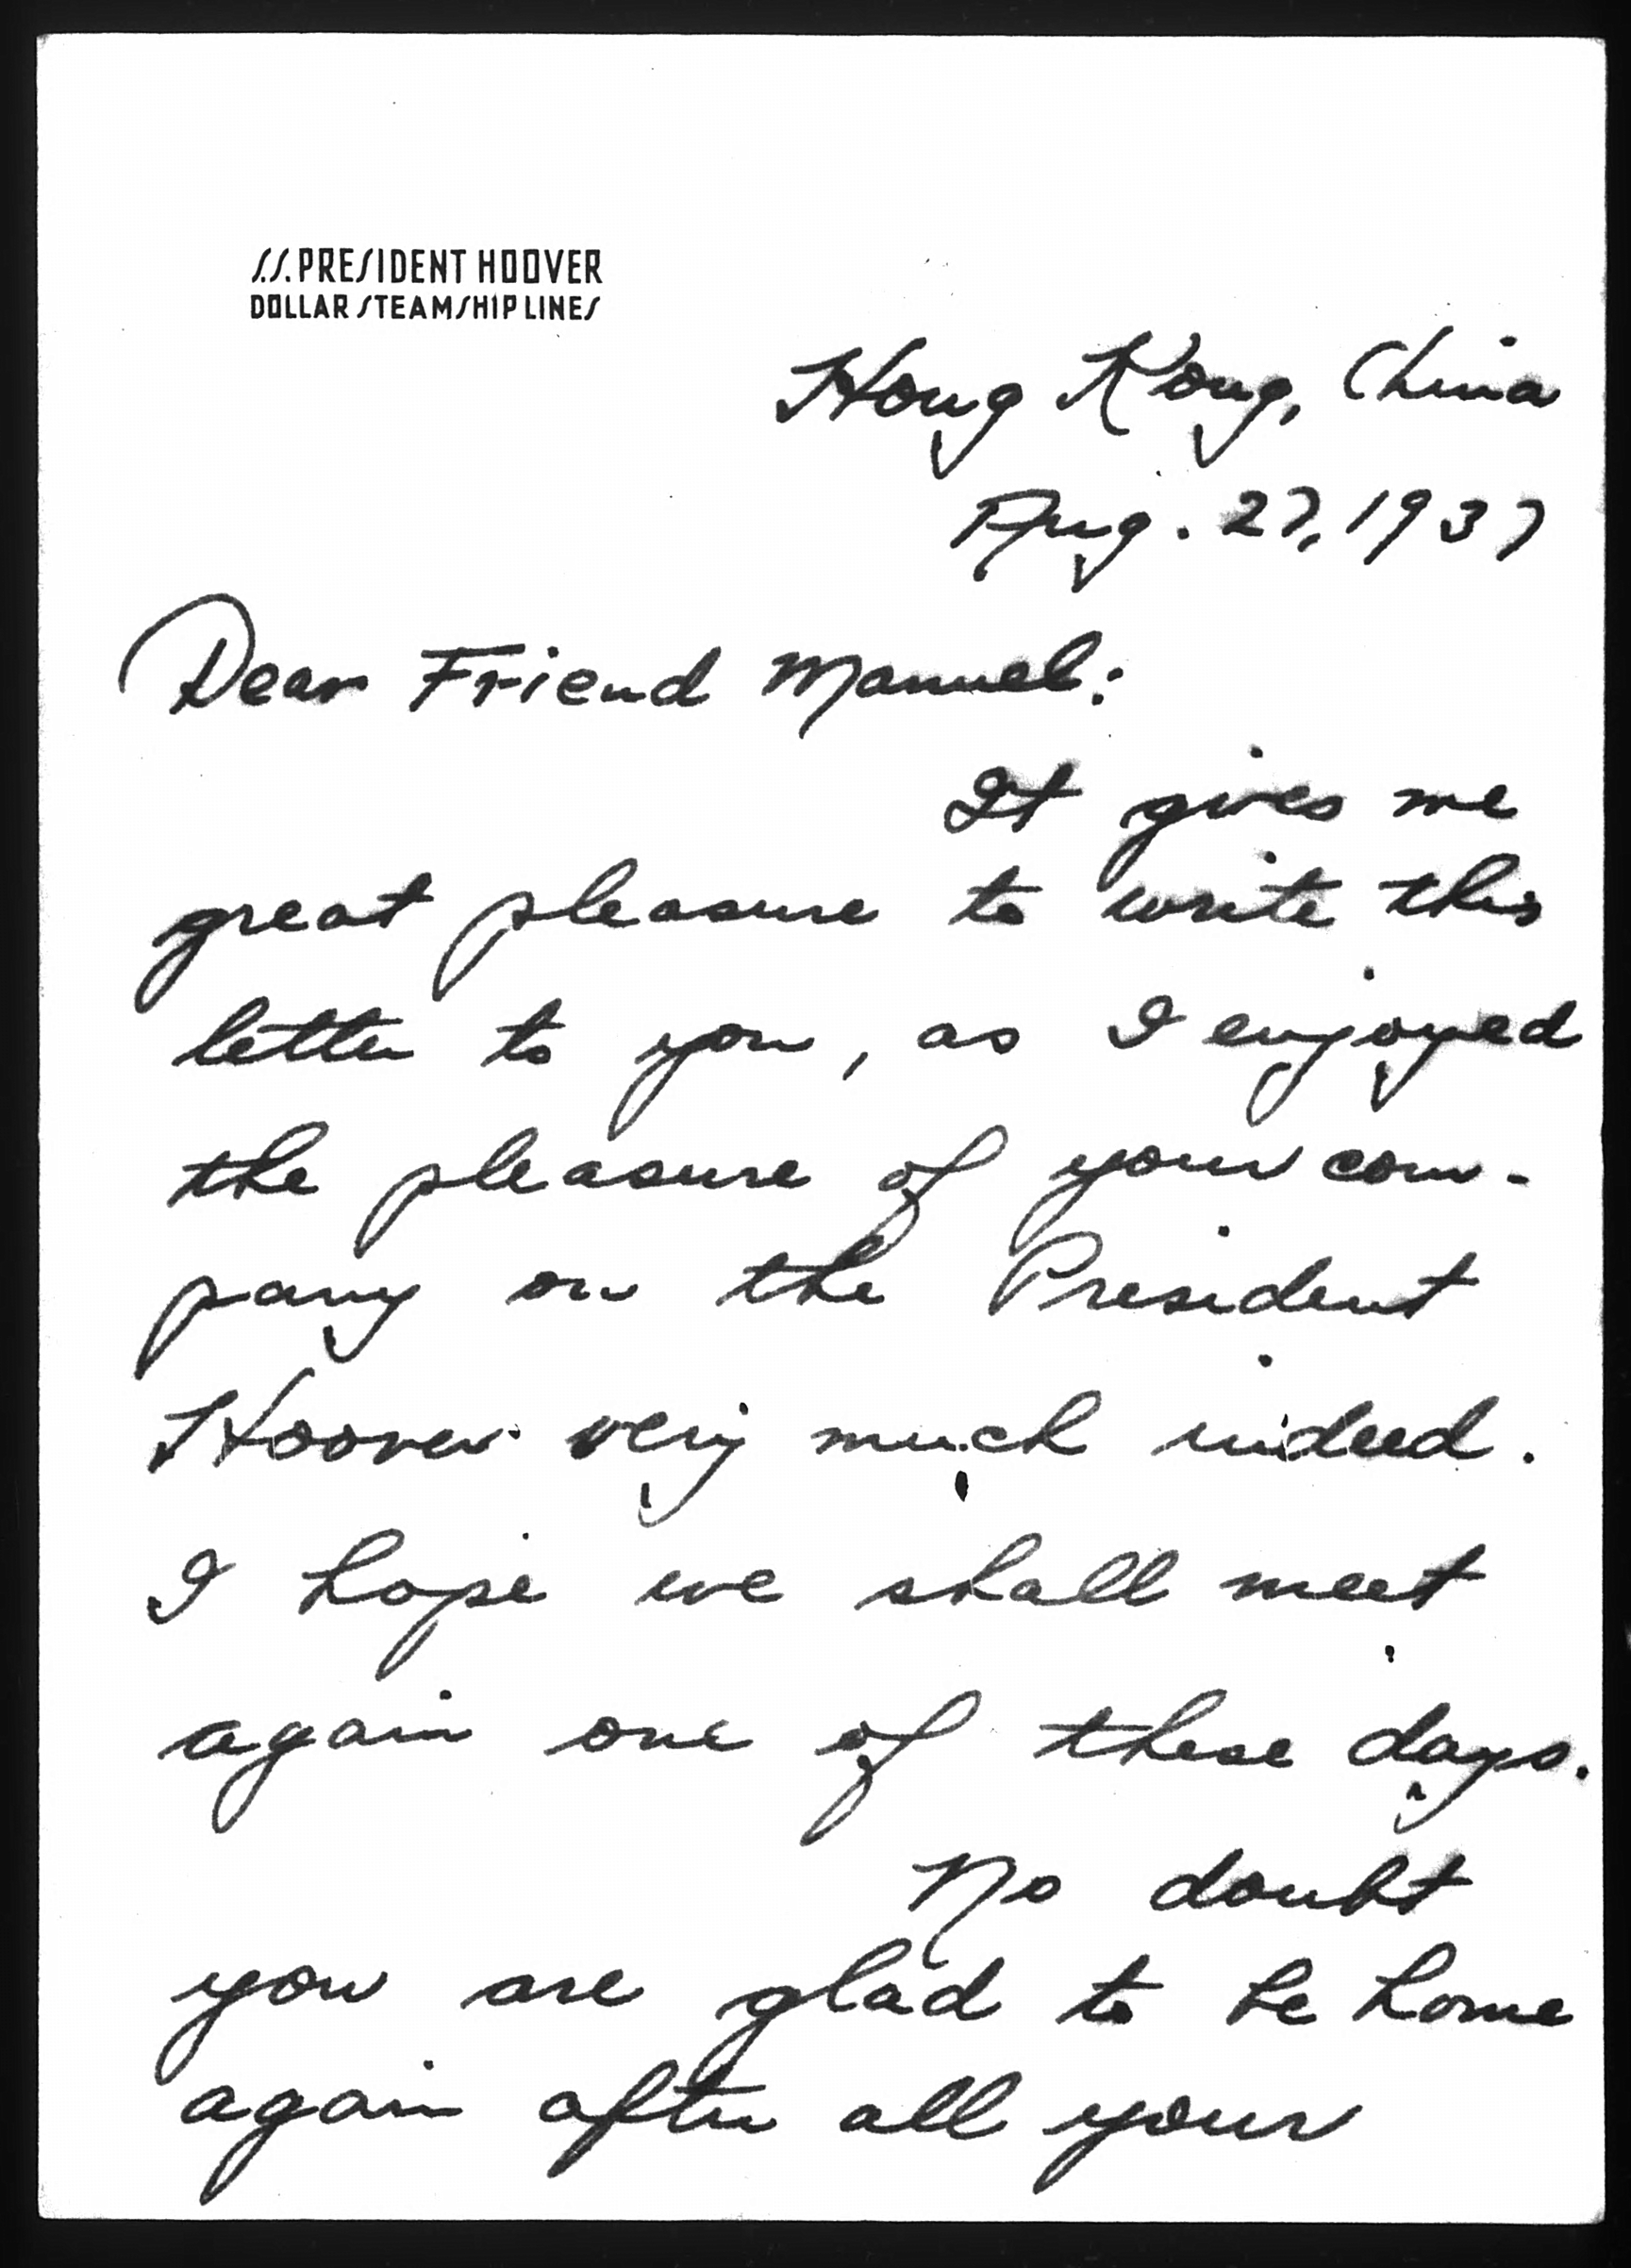 S.S. PRESIDENT HOOVER
DOLLAR STEAMSHIP LINES
Hong Kong, China
Aug. 27, 1937
Dear Friend Manuel:
It gives me
great pleasure to write this
letter to you, as I enjoyed
the pleasure of your com-
pany on the President
Hoover very much indeed.
I hope we shall meet
again one of these days.
No doubt
you are glad to be home
again after all your